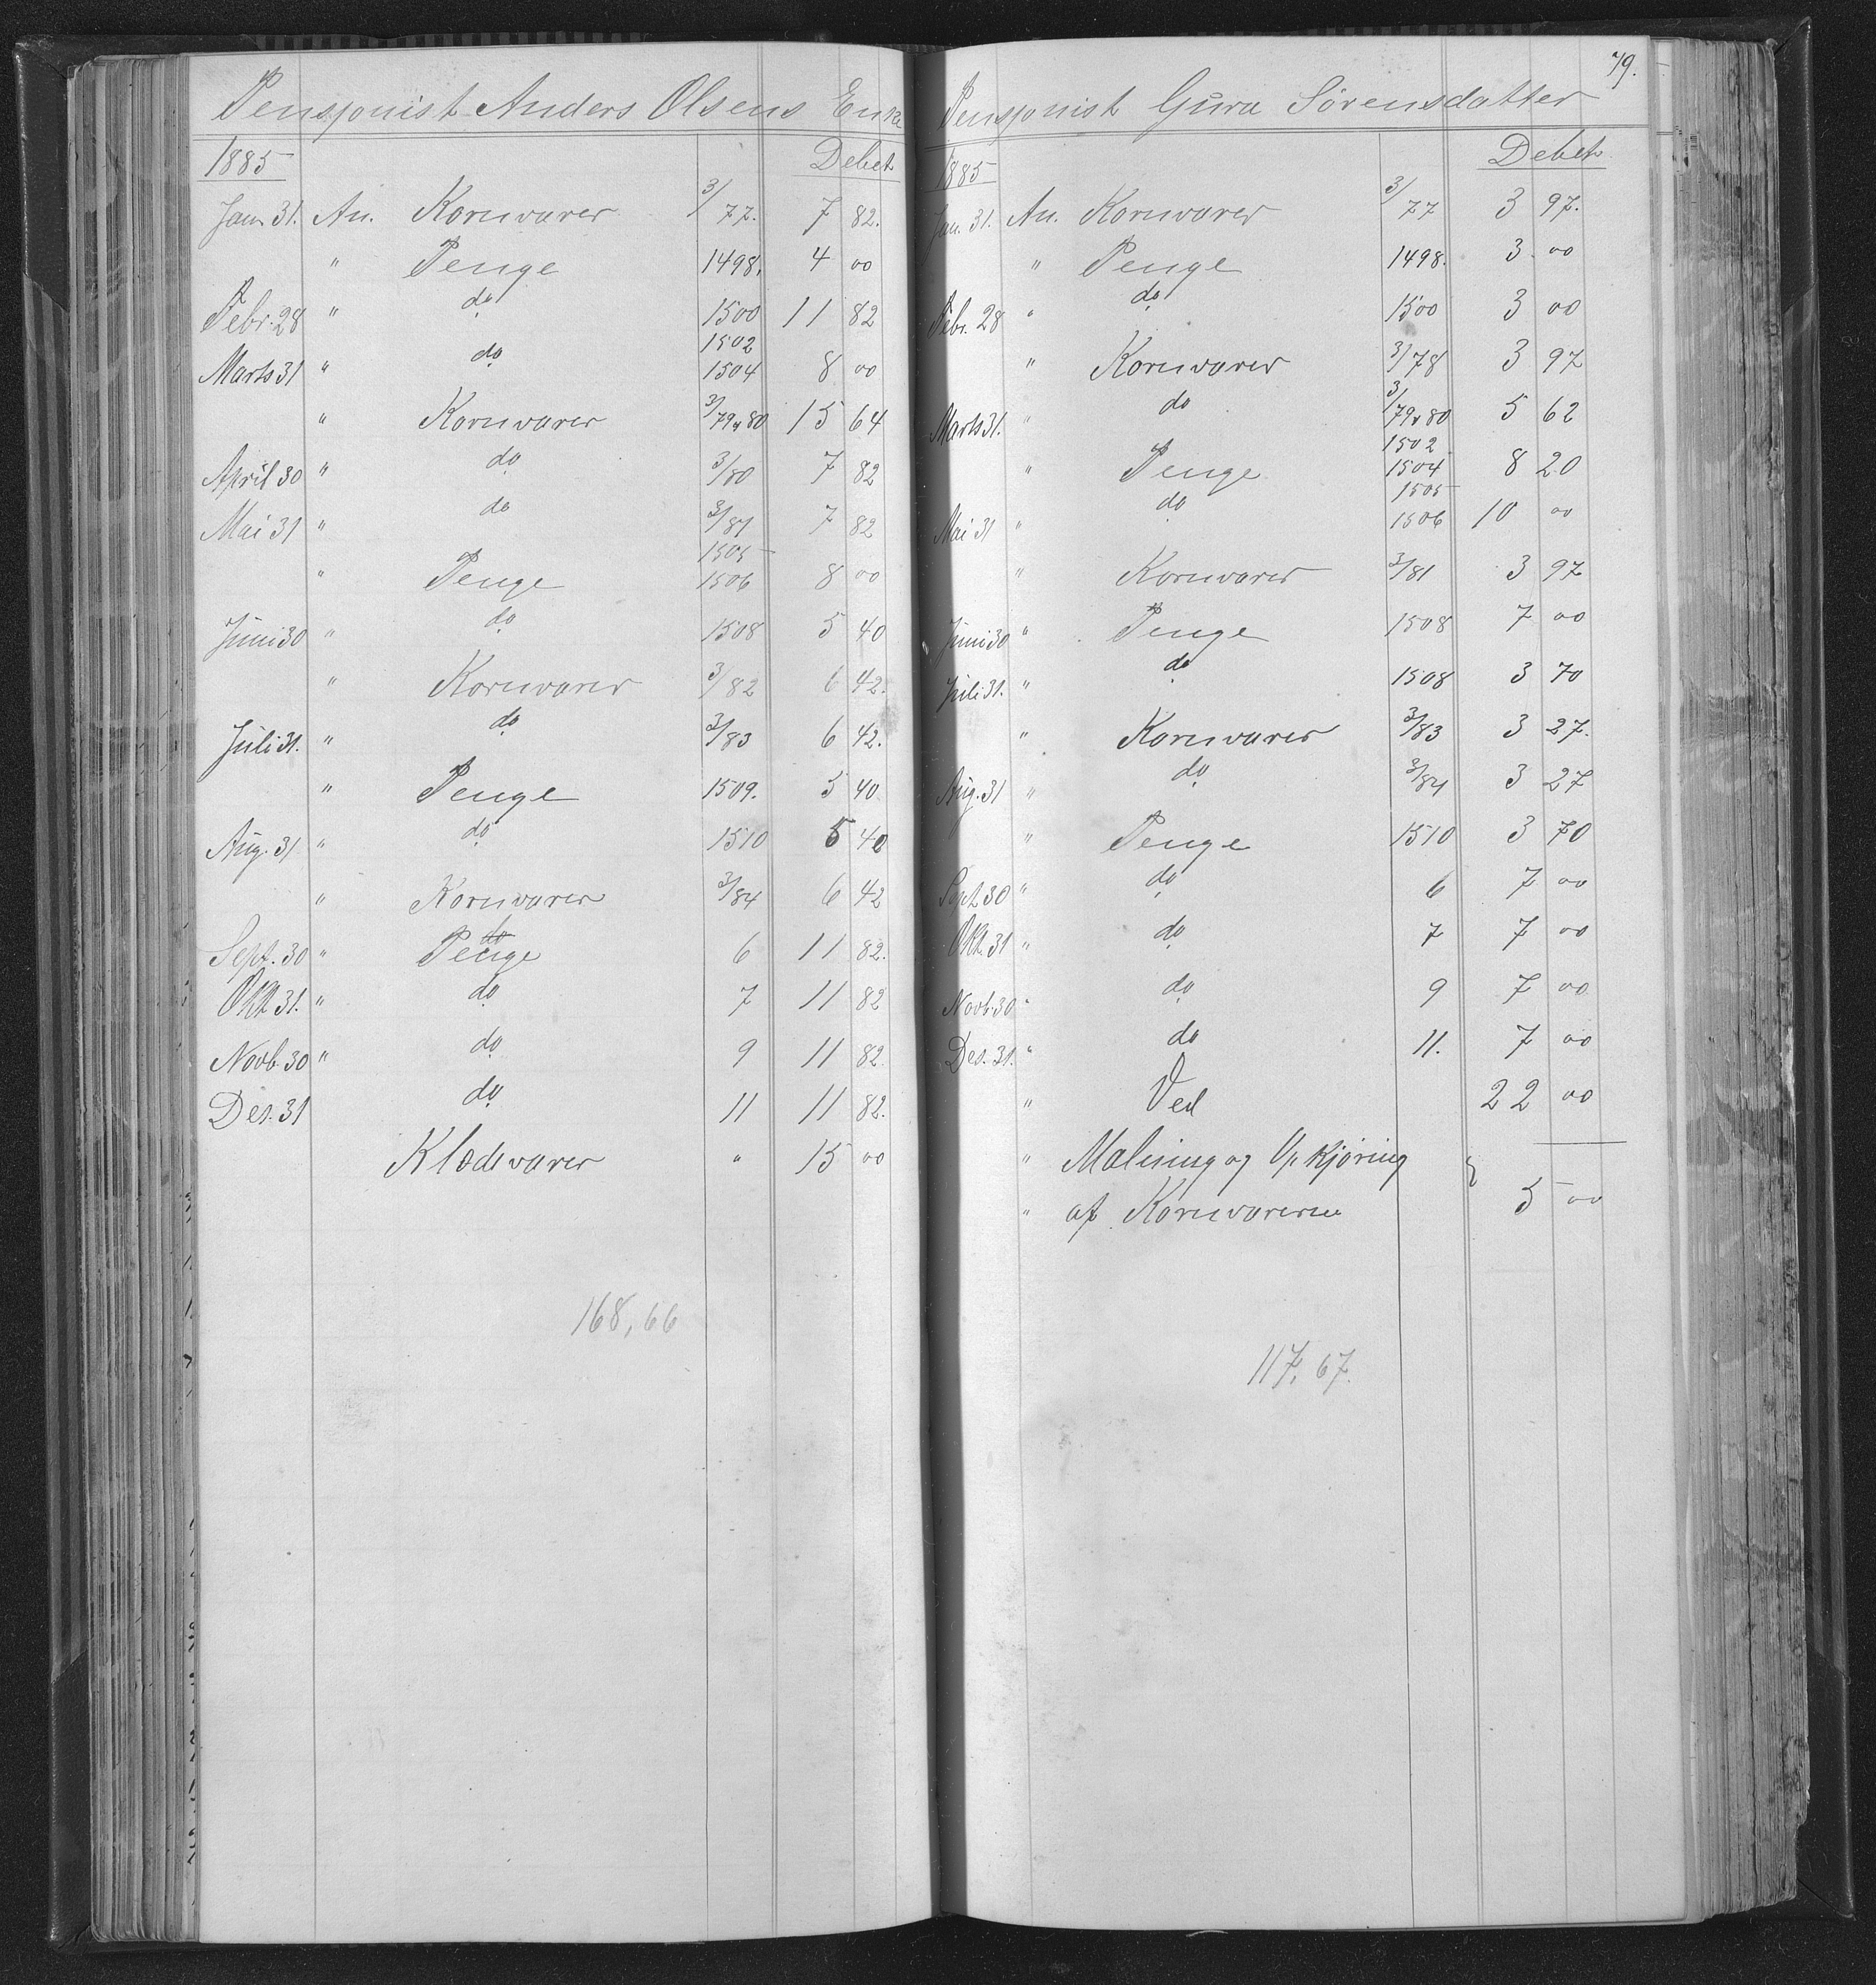 Pensjonist Anders Olsens Enke
1885 Debet
Jan. 31. An. Kornvarer 3/77. 7 82.
" Penge 1498. 4 00
Febr. 28 " do 1500 11 82
1502
Marts 31 " do 1504 8 00
" Kornvarer 3/79 & 80 15 64
April 30 " do 3/80 7 82
Mai 31 " do 3/81 7 82
1505
" Penge 1506 8 00
Juni 30 " do 1508 5 40
" Kornvarer 3/82 6 42.
Juli 31. " do 3/83 6 42.
" Penge 1509. 5 40
Aug. 31 " do 1510 5 40
" Kornvarer 3/84 6 42
Sept. 30 " Penge 6 11 82.
Okt 31. " do 7 11 82
Novb. 30 " do 9 11 82.
Des. 31 do 11 11 82.
Klædevarer " 15 00
168,66
79.
Pensjonist Gura Sørensdatter
1885 Debet
Jan. 31. An. Kornvarer 3/77 3 97.
" Penge 1498. 3 00
Febr. 28 " do 1500 3 00
" Kornvarer 3/78 3 97
Marts 31. " do 3/79 & 80 5 62
1502
" Penge 1504 8 20
1505
Mai 31 " do 1506 10 00
" Kornvarer 3/81 3 97
Juni 30 " Penge 1508 7 00
Juli 31. " do 1508 3 70
" Kornvarer 3/83 3 27.
Aug. 31 " do 3/84 3 27
" Penge 1510 3 70
Sept 30 " do 6 7 00
Okt. 31 " do 7 7 00
Novb. 30 " do 9 7 00
Des. 31. " do 11. 7 00
" Ved 22 00
" Malning og Opkjøring
" af Kornvarerne 5 00
117,67.